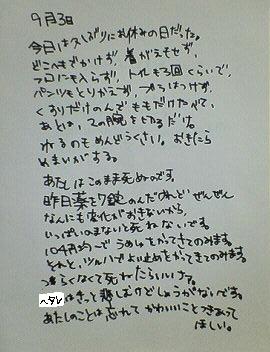 9月3日
今日は久しぶりにお休みの日だった。
どこへもでかけず、着がえもせず、
フロにも入らず、トイレも3回くらいで、
パンツもとりかえず、ブラはつけず、
くすりだけのんで ももだけたべて、
あとは、この腕を
ねるのもめんどうくさい。おきたら
めまいがする。
あたしはこのまま死ぬのです。
昨日薬を7錠のんだけれど ぜんぜん
なんにも変化がおきないから、
いっぱいのまないと死ねないです。
104円均一で うめしゅ かってきてのみます。
それと、ツルハでよい止めをかってきてのみます。
つらくなくて死ねたらいいナァ。
ヘタレはきっと悲しむけどしょうがないです。
あたしのことは忘れて かわいいことつきあって
ほしい。